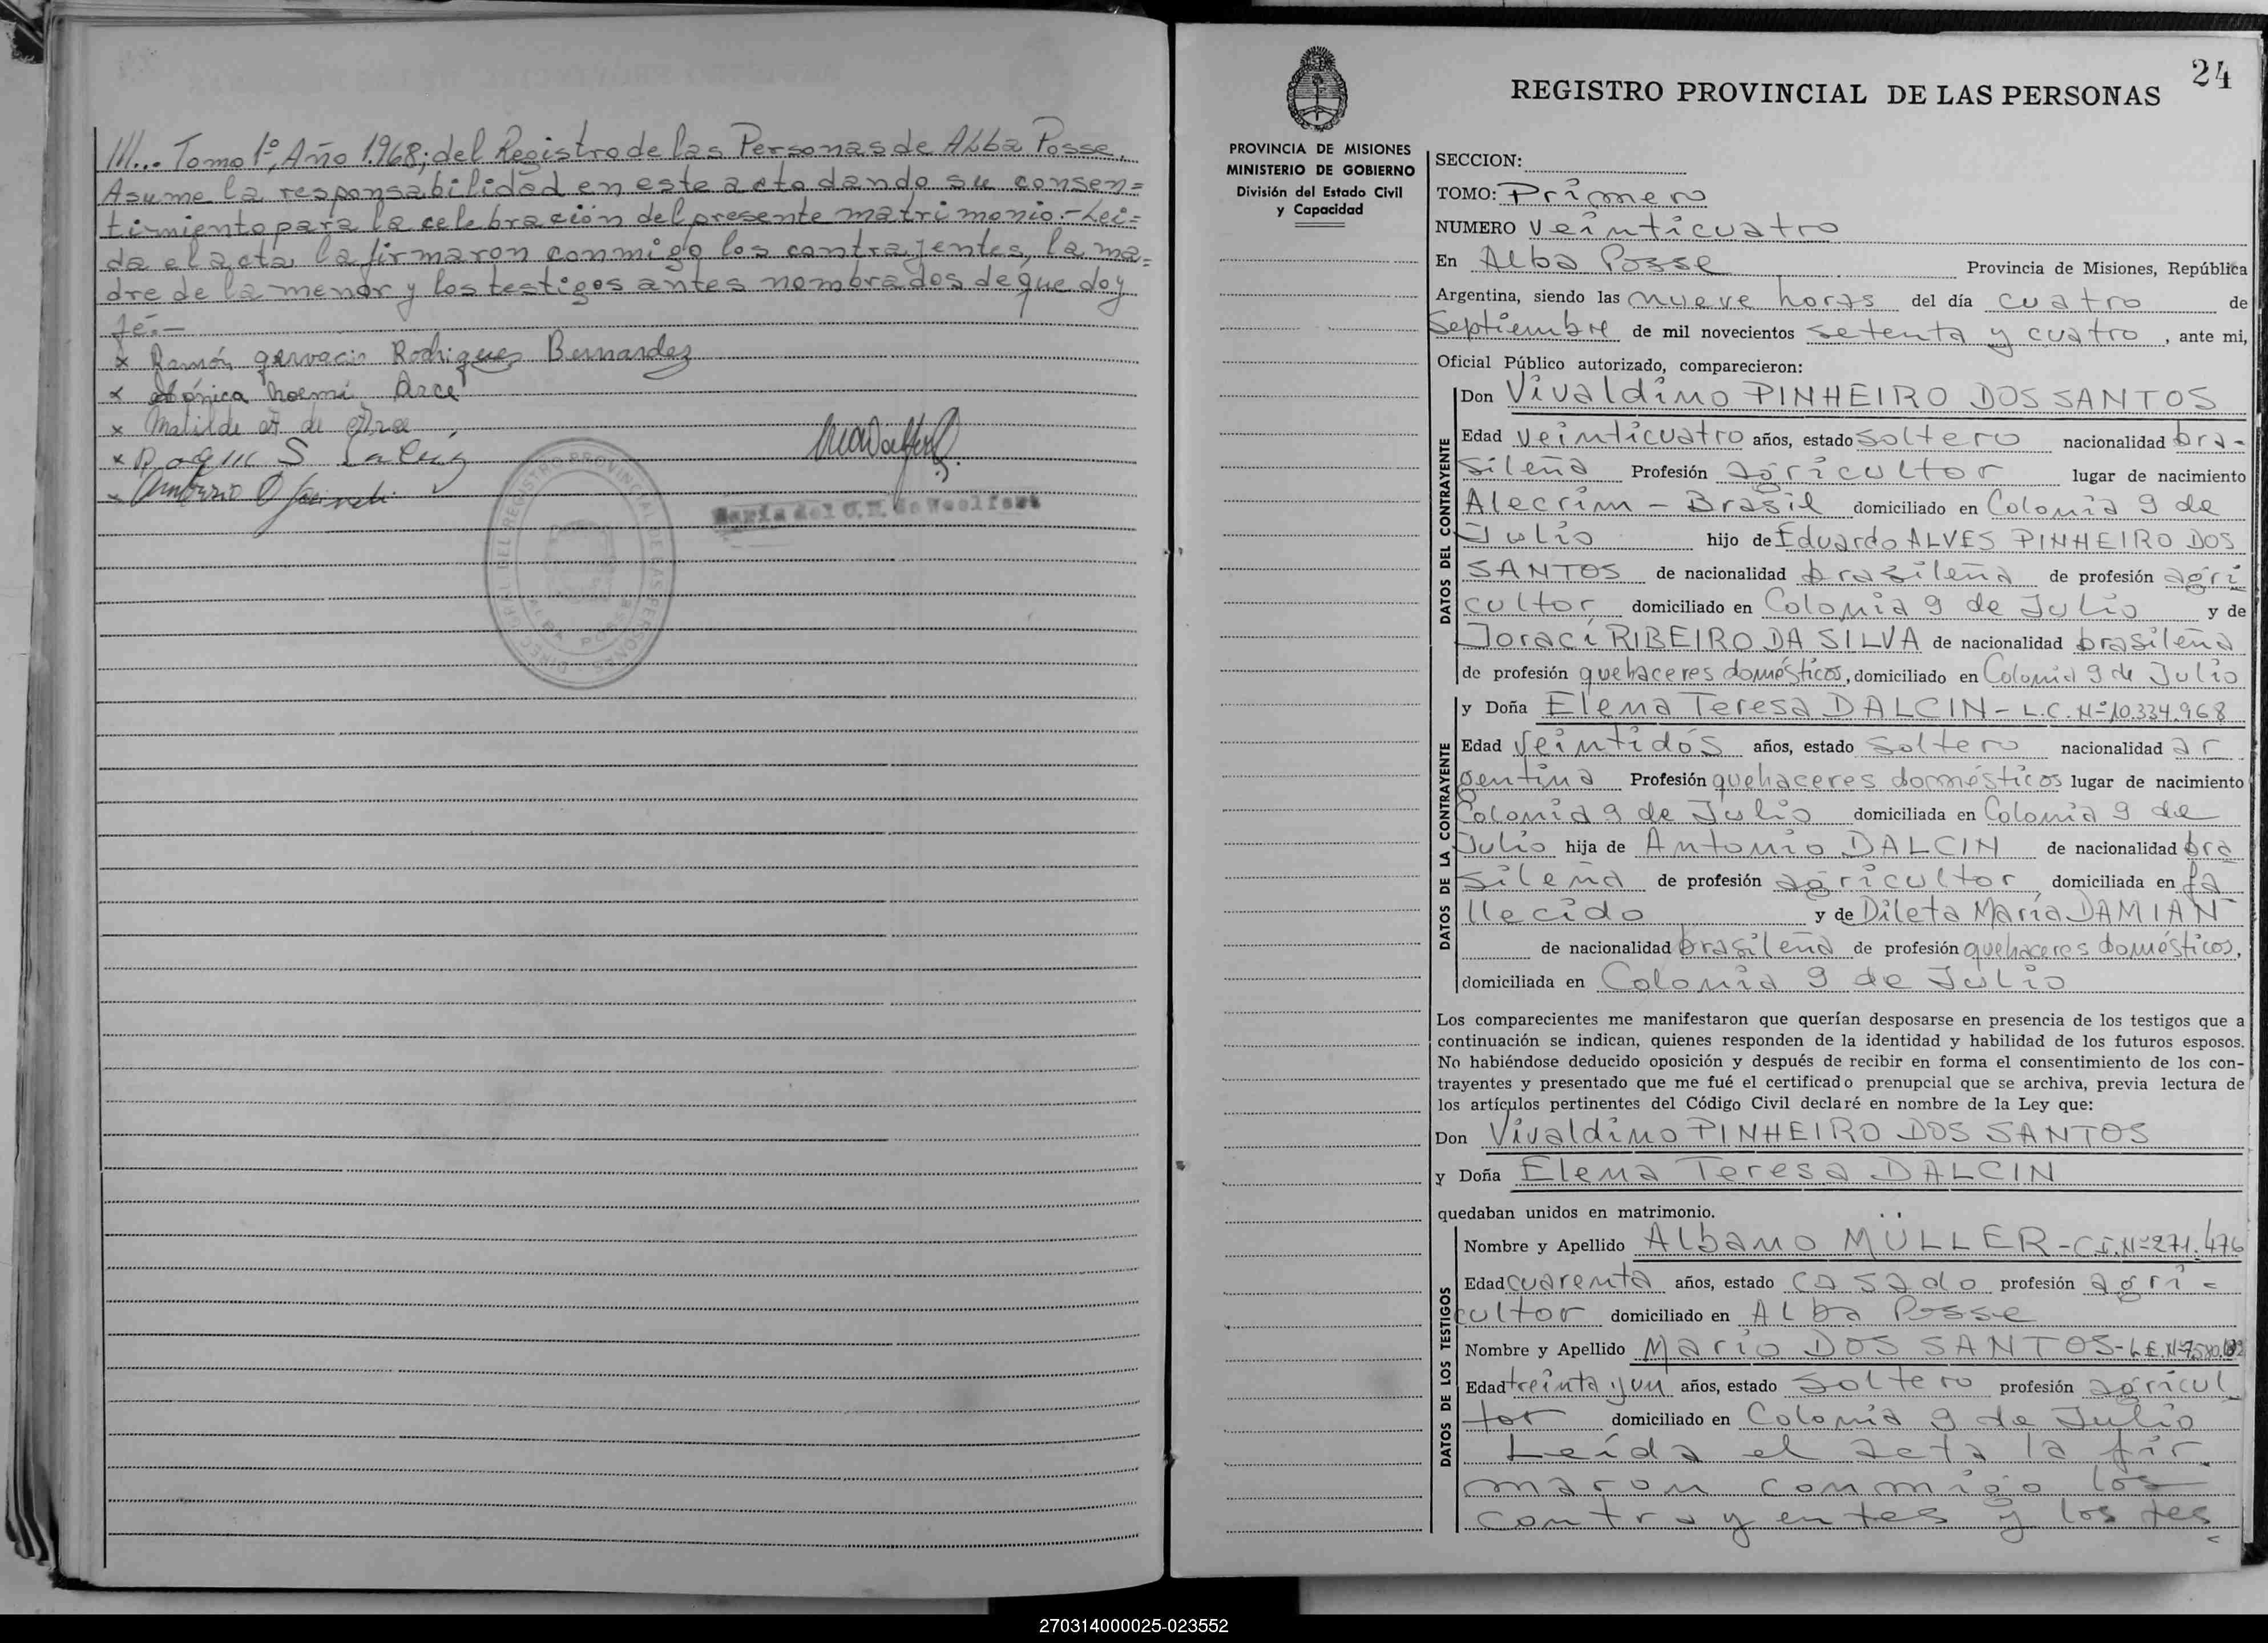 III... Tomo 1º, Año 1.968; del Registro de las Personas de Alba Posse.
Asume la responsabilidad en este acto dando su consen=
timiento para la celebración del presente matrimonio.- Leí=
da el acta la firmaron conmigo los contrayentes, la ma=
dre de la menor y los testigos antes nombrados de que doy
fé.-
x Ramón gervacio Rodrigues Bernardez
x Mónica Noemi Arce
x Matilde de
x Roque S
x
María del C.M. de Woolfert
DIRECC. GRAL. DEL REGISTRO PROVINCIAL DE LAS PERSONAS
ALBA POSSE
24
REGISTRO PROVINCIAL DE LAS PERSONAS
PROVINCIA DE MISIONES
MINISTERIO DE GOBIERNO
División del Estado Civil
y Capacidad
SECCION:
TOMO: Primero
NUMERO veinticuatro
En Alba Posse Provincia de Misiones, República
Argentina, siendo las nueve horas del día cuatro de
Septiembre de mil novecientos setenta y cuatro, ante mi,
Oficial Público autorizado, comparecieron:
DATOS DEL CONTRAYENTE
Don Vivaldino PINHEIRO DOS SANTOS
Edad veinticuatro años, estado soltero nacionalidad bra-
sileña Profesión agricultor lugar de nacimiento
Alecrim - Brasil domiciliado en Colonia 9 de
Julio hijo de Eduardo ALVES PINHEIRO DOS
SANTOS de nacionalidad brasileña de profesión agri
cultor domiciliado en Colonia 9 de Julio y de
Joraci RIBEIRO DA SILVA de nacionalidad brasileña
de profesión quehaceres domésticos, domiciliado en Colonia 9 de Julio
DATOS DE LA CONTRAYENTE
y Doña Elena Teresa DALCIN - L.C. Nº 10.334.968
Edad veintidós años, estado soltero nacionalidad ar
gentina Profesión quehaceres domésticos lugar de nacimiento
Colonia 9 de Julio domiciliada en Colonia 9 de
Julio hija de Antonio DALCIN de nacionalidad bra
sileña de profesión agricultor domiciliada en fa
llecido y de Dileta María DAMIAN
de nacionalidad brasileña de profesión quehaceres domésticos,
domiciliada en Colonia 9 de Julio
Los comparecientes me manifestaron que querían desposarse en presencia de los testigos que a
continuación se indican, quienes responden de la identidad y habilidad de los futuros esposos.
No habiéndose deducido oposición y después de recibir en forma el consentimiento de los con-
trayentes y presentado que me fué el certificado prenupcial que se archiva, previa lectura de
los artículos pertinentes del Código Civil declaré en nombre de la Ley que:
Don Vivaldino PINHEIRO DOS SANTOS
y Doña Elena Teresa DALCIN
quedaban unidos en matrimonio.
DATOS DE LOS TESTIGOS
Nombre y Apellido Albano MÜLLER - C.I. Nº 271.476
Edad cuarenta años, estado casado profesión agri=
cultor domiciliado en Alba Posse
Nombre y Apellido Mario DOS SANTOS - L.E. Nº
Edad treinta y un años, estado soltero profesión agricul
tor domiciliado en Colonia 9 de Julio
Leída el acta la fir
maron conmigo los
contrayentes y los tes
=
270314000025-023552